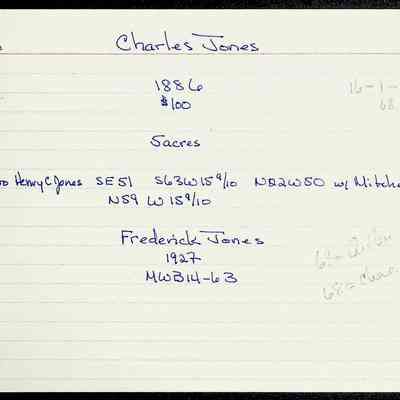 Charles Jones
1886
$100
16-1-
68
5acres
Henry C Jones SE51 S63W15 9/10 N22W50 w/ Mitche
N59 W 15 9/10
Frederick Jones
1927
MWB14-63
68 = Char